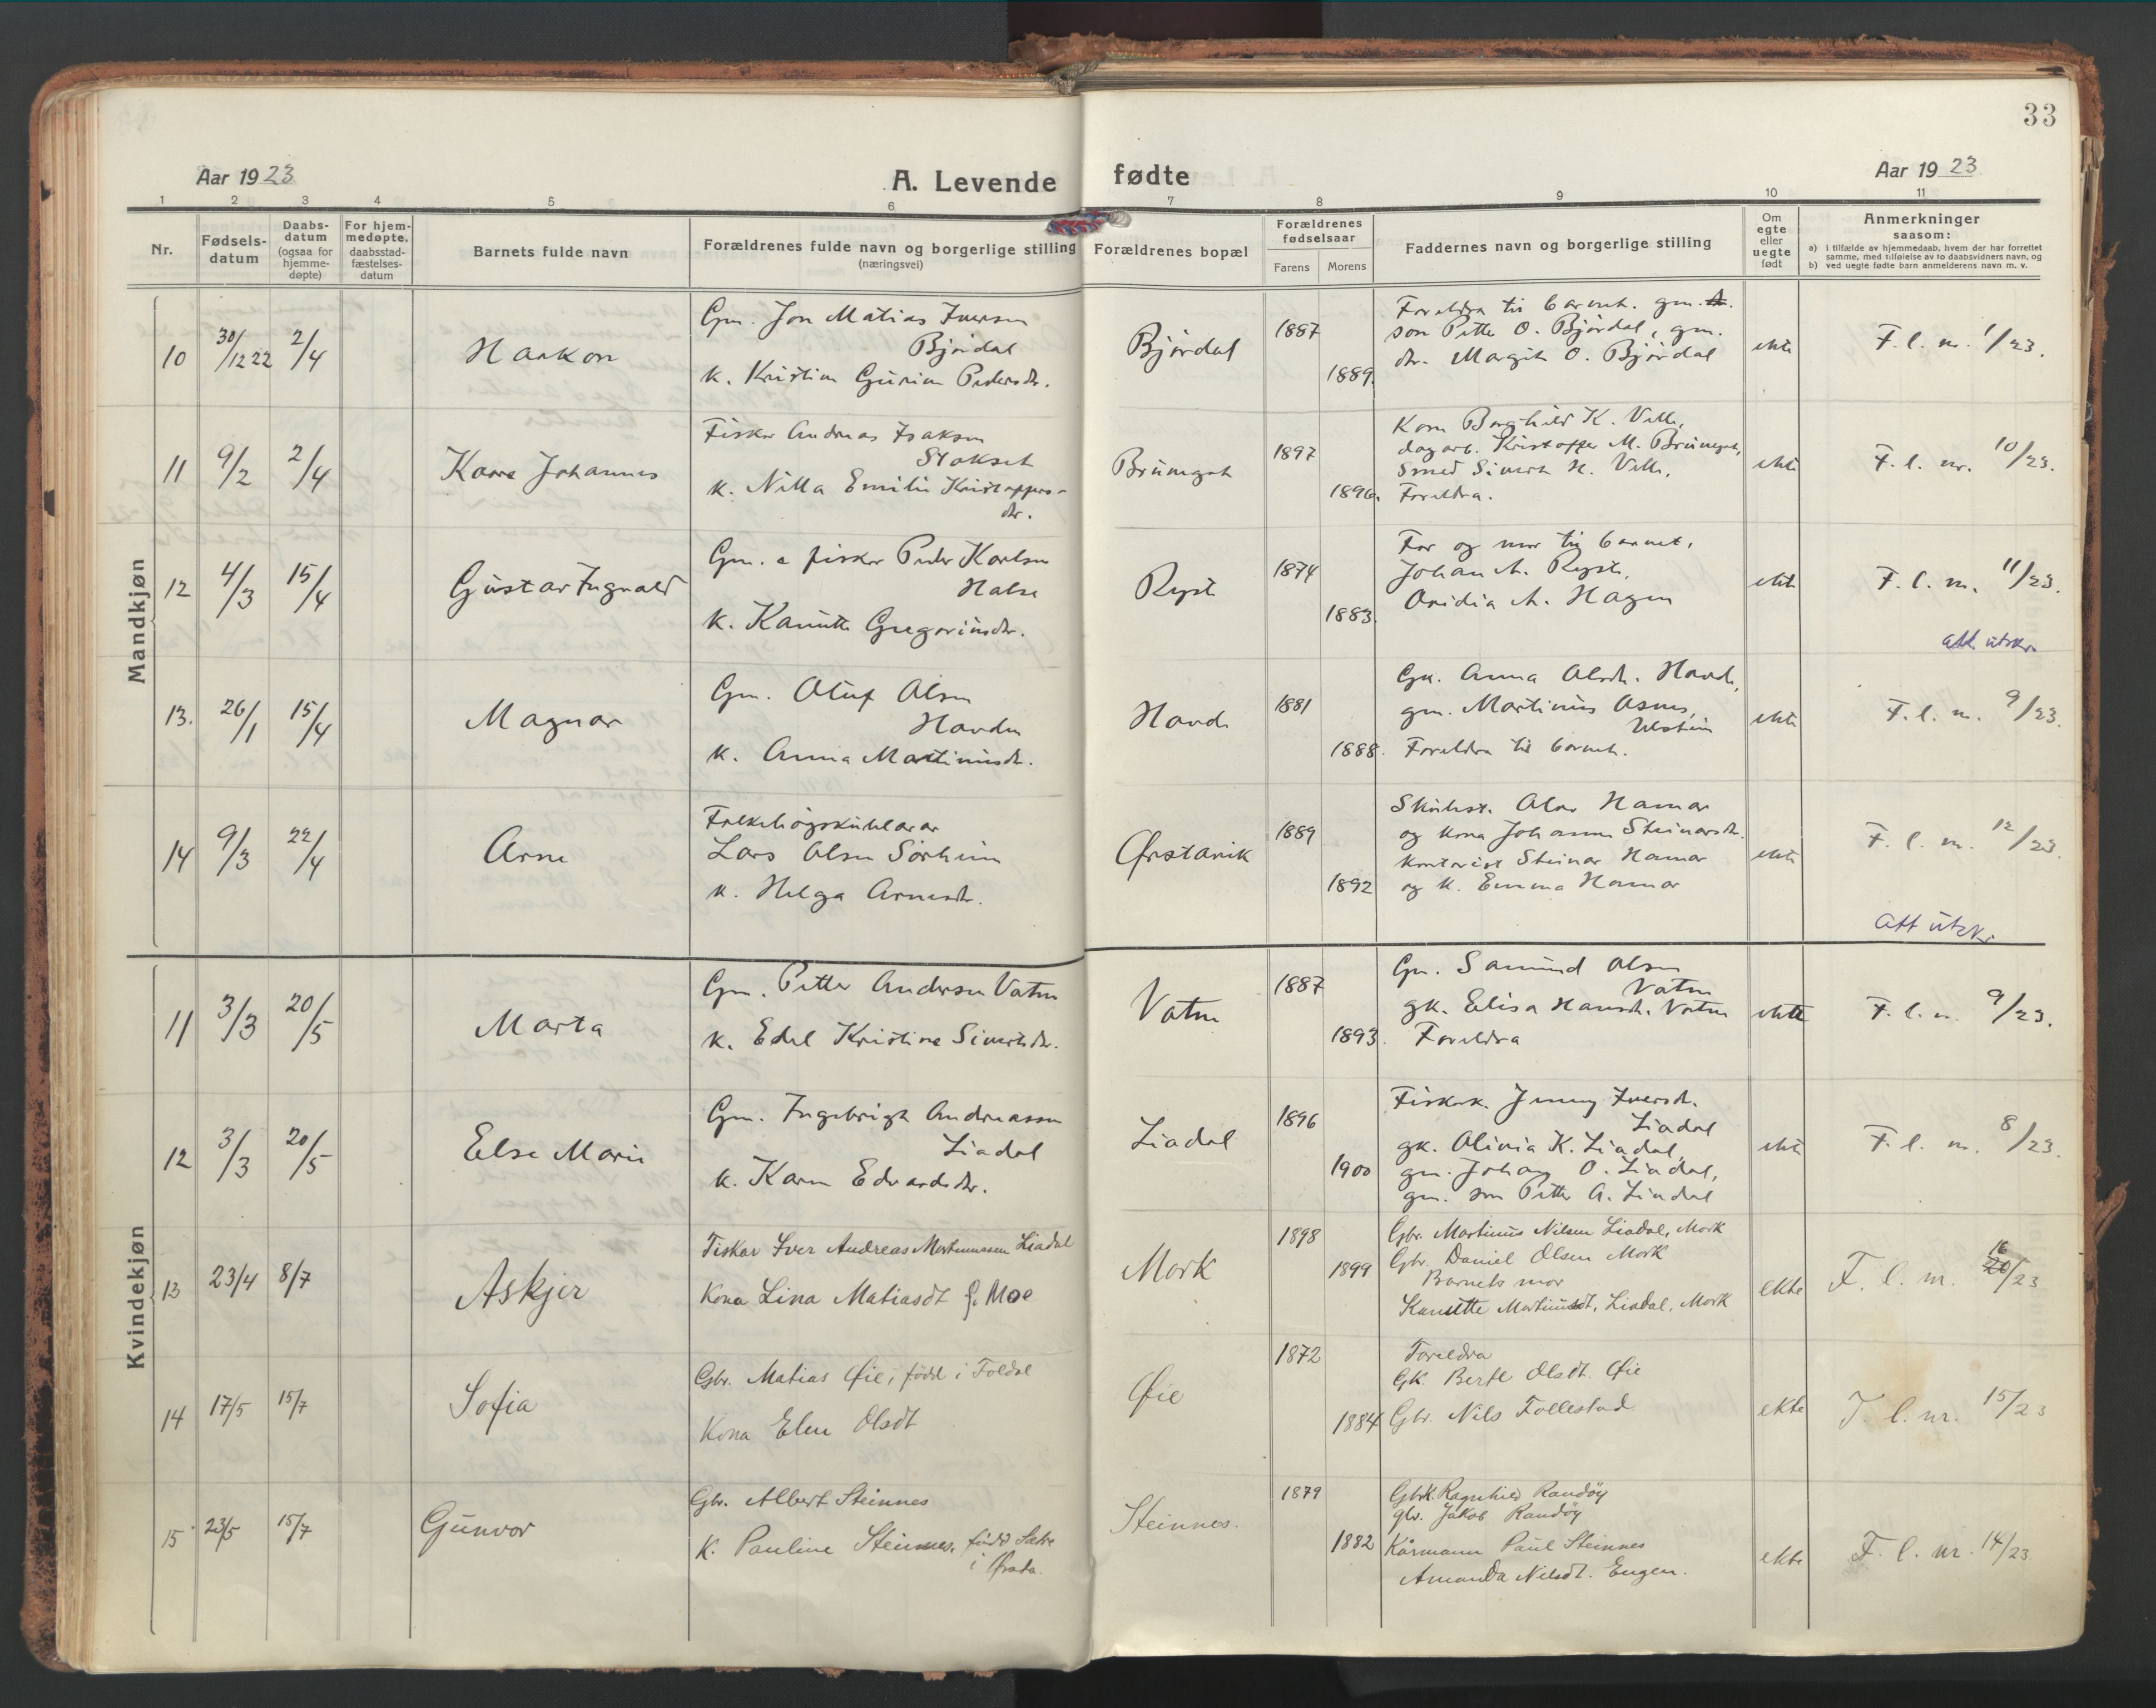 33
Aar 1923
A. Levende fødte
Aar 1923
1 2 3 4 5 6 7 8 9 10 11
Nr.
Fødsels-
datum
Daabs-
datum
(ogsaa for
hjemme-
døpte)
For hjem-
medøpte,
daabsstad-
fæstelses-
datum
Barnets fulde navn
Forældrenes fulde navn og borgerlige stilling
(næringsvei)
Forældrenes bopæl
Forældrenes
fødselsaar
Farens Morens
Faddernes navn og borgerlige stilling
Om
egte
eller
uegte
født
Anmerkninger
saasom:
a) i tilfælde av hjemmedaab, hvem der har forrettet
samme, med tilføielse av to daabsvidners navn, og
b) ved uegte fødte barn anmelderens navn m. v.
Mandkjøn
10 30/12 22 2/4
Haakon
Gm. Jon Matias Iversen
Bjørdal
k. Kristine Gurine Pedersdr.
Bjørdal
1887
1889.
Foreldra til barnet. gm.
son Petter O. Bjørdal, gm.
dr. Margit O. Bjørdal
ekte
F. l. nr. 1/23.
11 9/2 2/4
Kaare Johannes
Fisker Andreas Isaksen
Stokset
k. Nilla Emilie Kristoffers-
dr.
1897
1896.
Kona Borghild K. Velle,
dagarb. Kristoffer M.
Smed Sivert H. Velle,
Foreldra.
ekte
F. l. nr. 10/23.
12 4/3 15/4
Gustav Ingvald
Gm. e fisker Peder Karlsen
Halse
k. Kanutte Gregoriusdr.
Ryste
1874
1883.
Far og mor til barnet,
Johan A. Ryste,
Ovidia A. Hagen
ekte
F. l. nr. 11/23.
Att utskr.
13. 26/1 15/4
Magnar
Gm. Oluf Olsen
Havden
k. Anna Martinusdr.
Havde
1881
1888.
Gk. Anna Olsdr. Havde,
gm. Martinus Osnes,
Ulstein
Foreldra til barnet.
ekte
F. l. nr. 9/23.
14 9/3 22/4
Arne
Folkehøgskulelærar
Lars Olsen Sørheim
k. Helga Arnesdr.
Ørstavik
1889
1892
Skulest. Olav Hamar
og kona Johanne Steinarsdr.
kontorist Steinar Hamar
og k. Emma Hamar
ekte
F. l. nr. 12/23.
Att utskr.
Kvindekjøn
11 3/3 20/5
Marta
Gm. Petter Andersen Vatne
k. Edel Kristine Sivertsdr.
Vatne
1887
1893.
Gm. Samund Olsen
Vatne
gk. Elisa Hansdr. Vatne
Foreldra
ekte
F. l. nr. 9/23.
12 3/3 20/5
Else Marie
Gm. Ingebrigt Andreassen
Liadal
k. Karen Edvardsdr.
Liadal
1896
1900
Fiskark. Jenny Iversdr.
Liadal
gk. Olivia K. Liadal,
gm. Johan O. Liadal,
gm. son Petter A. Liadal
ekte
F. l. nr. 8/23.
13 23/4 8/7
Askjer
Fiskar Iver Andreas Martinussen Liadal
Kona Lina Matiasdt f. Moe
Mork
1898
1899
Gbr. Martinus Nilsen Liadal, Mork
Gbr. Daniel Olsen Mork
Barnets mor
Kanutte Martinusdt, Liadal, Mork
ekte
F. l. nr. 16 20/23
14 17/5 15/7
Sofia
Gbr. Matias Øie, född i Foldal
Kona Elen Olsdt
Øie
1872
1884
Foreldra
Gk. Berte Olsdt. Øie
Gbr. Nils Follestad.
ekte
F. l. nr. 15/23
15 23/5 15/7
Gunvor
Gbr. Albert Steinnes
K. Pauline Steinnes, född Sætre
i Ørsta.
Steinnes.
1879
1882
Gbrk. Ragnhild Randöy
gbr. Jakob Randöy
Kårmann Paul Steinnes
Amanda Nilsdt. Eugen.
ekte
F. l. nr. 14/23